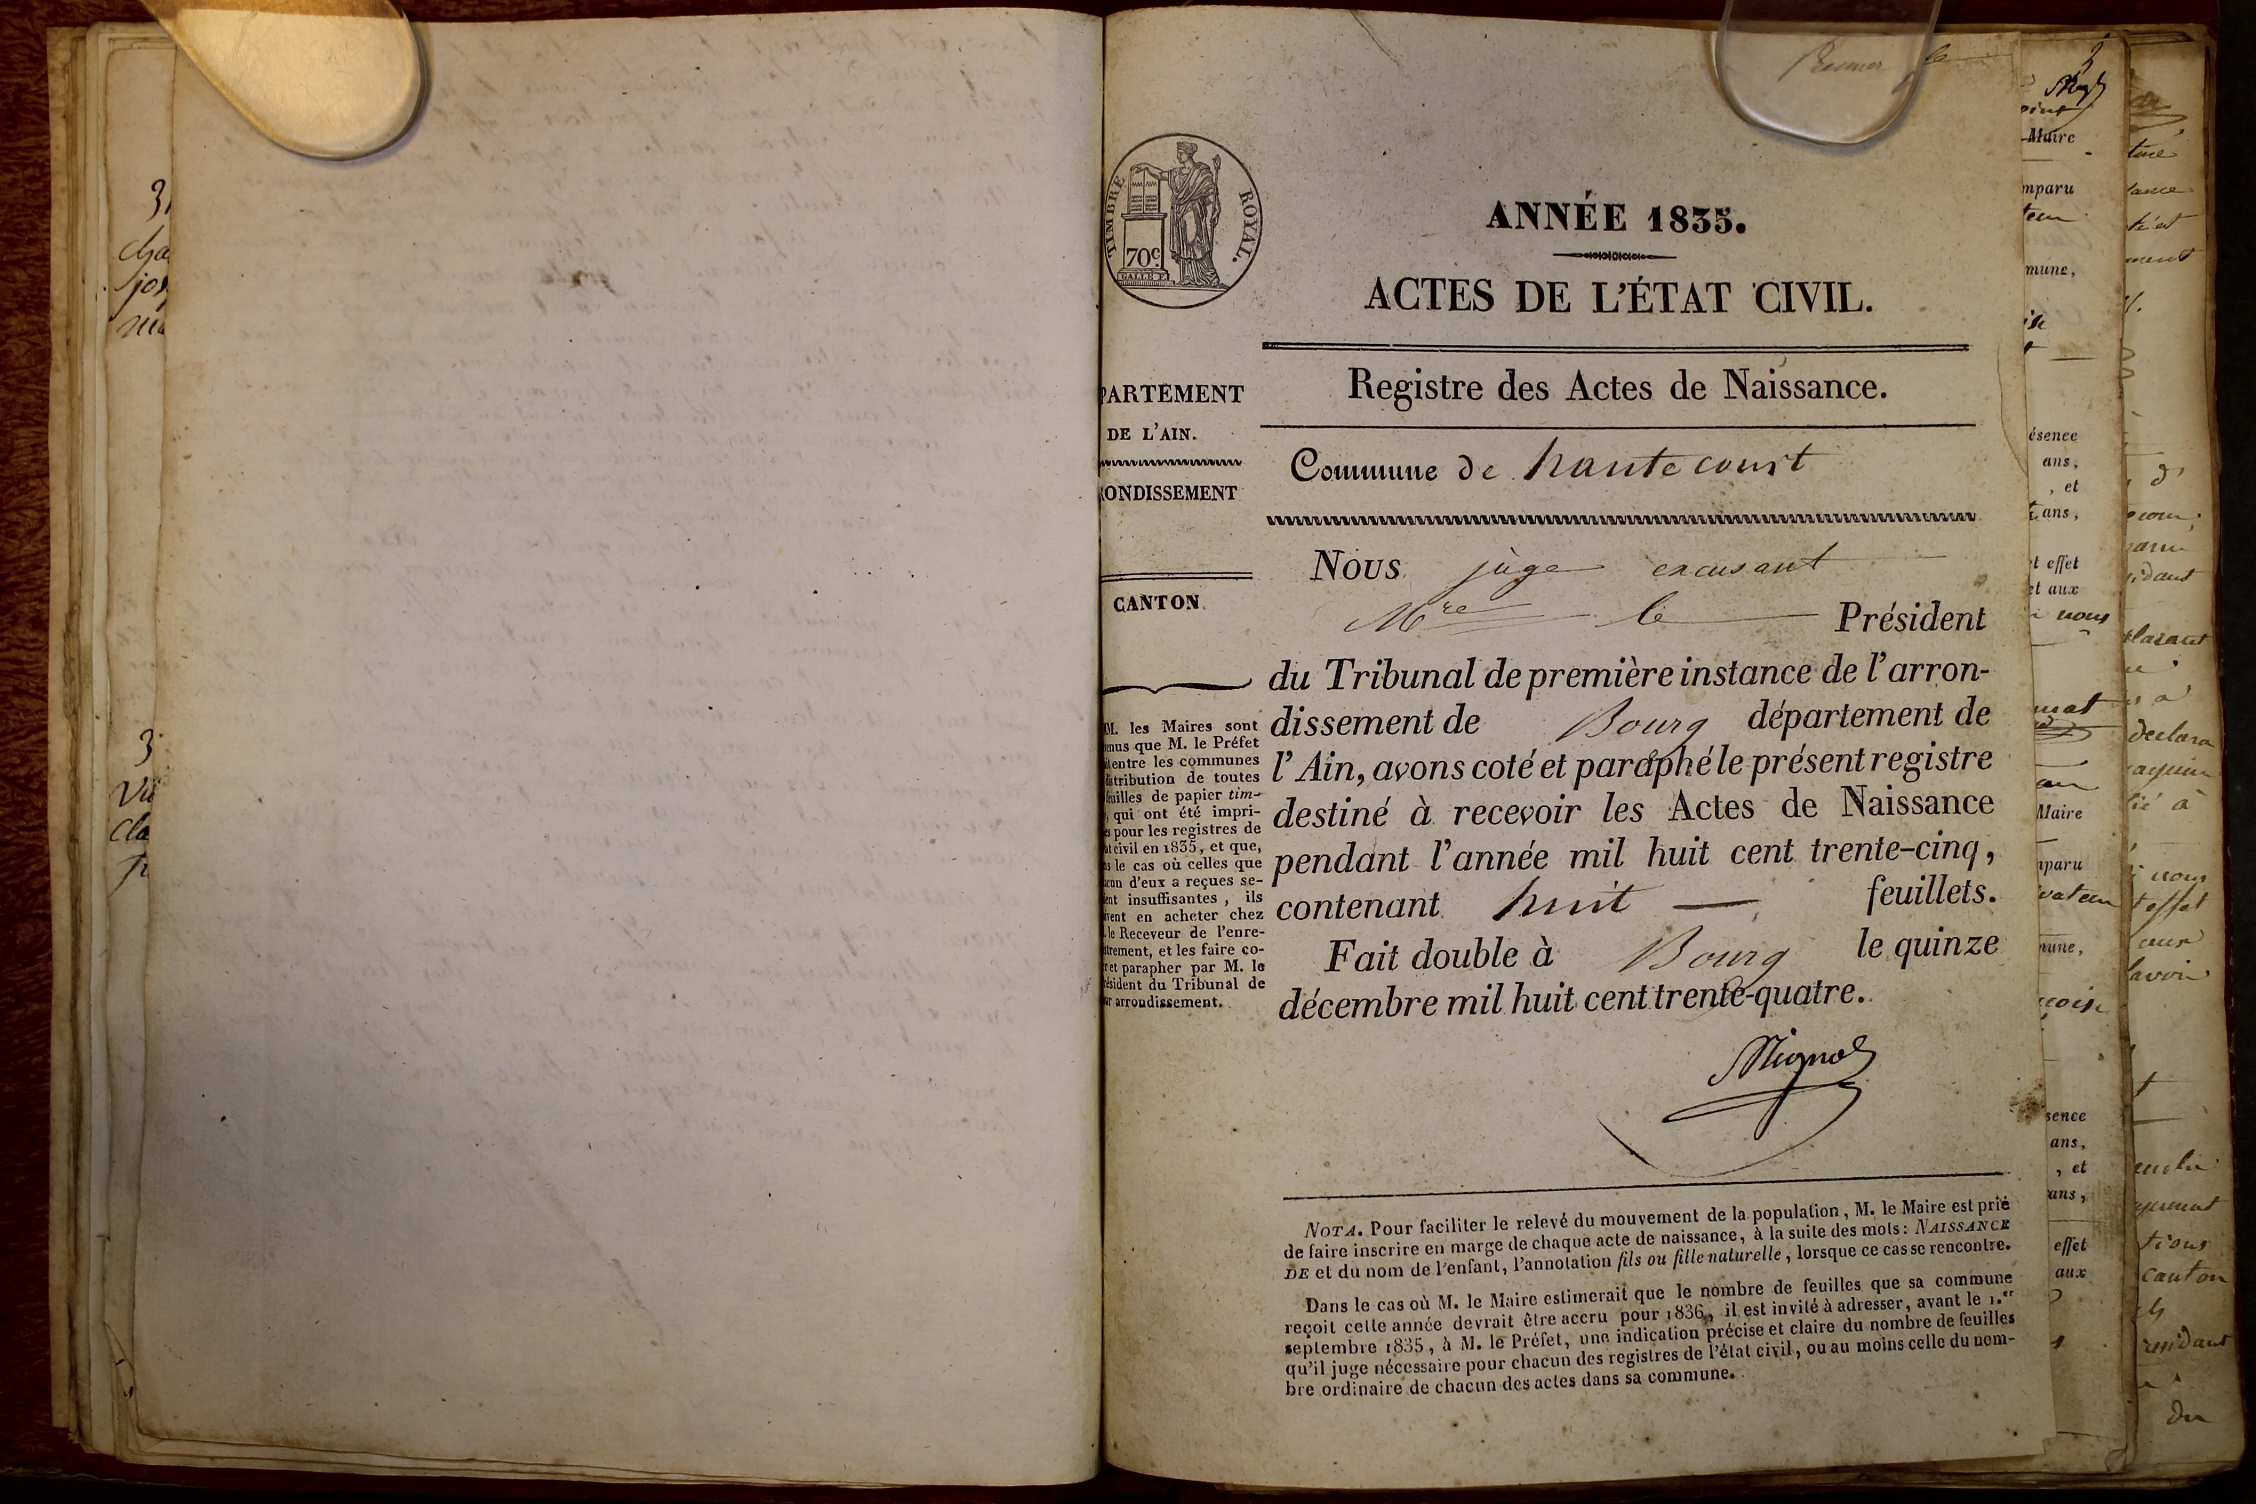 TIMBRE ROYAL.
70c.
GALLE F.
ANNÉE 1835.
ACTES DE L'ÉTAT CIVIL.
PARTEMENT
DE L'AIN.
ONDISSEMENT
CANTON
M. les Maires sont
nus que M. le Préfet
entre les communes
tribution de toutes
uilles de papier tim-
, qui ont été impri-
s pour les registres de
at civil en 1835, et que,
s le cas où celles que
cun d'eux a reçues se-
ent insuffisantes, ils
vent en acheter chez
le Receveur de l'enre-
trement, et les faire co-
r et parapher par M. le
ésident du Tribunal de
ur arrondissement.
Registre des Actes de Naissance.
Commune de hautecourt
Nous juge excusant
Mre le Président
du Tribunal de première instance de l'arron-
dissement de Bourg département de
l'Ain, avons coté et paraphé le présent registre
destiné à recevoir les Actes de Naissance
pendant l'année mil huit cent trente-cinq,
contenant huit feuillets.
Fait double à Bourg le quinze
décembre mil huit cent trente-quatre.
NOTA. Pour faciliter le relevé du mouvement de la population, M. le Maire est prié
de faire inscrire en marge de chaque acte de naissance, à la suite des mots: NAISSANCE
DE et du nom de l'enfant, l'annotation fils ou fille naturelle, lorsque ce cas se rencontre.
Dans le cas où M. le Maire estimerait que le nombre de feuilles que sa commune
reçoit cette année devrait être accru pour 1836, il est invité à adresser, avant le 1.er
septembre 1835, à M. le Préfet, une indication précise et claire du nombre de feuilles
qu'il juge nécessaire pour chacun des registres de l'état civil, ou au moins celle du nom-
bre ordinaire de chacun des actes dans sa commune.
Maire
mparu
mune,
ésence
ans,
, et
ans,
t effet
et aux
nous
Maire
mparu
vateur
mune,
sence
ans,
, et
ans,
effet
aux
canton
du